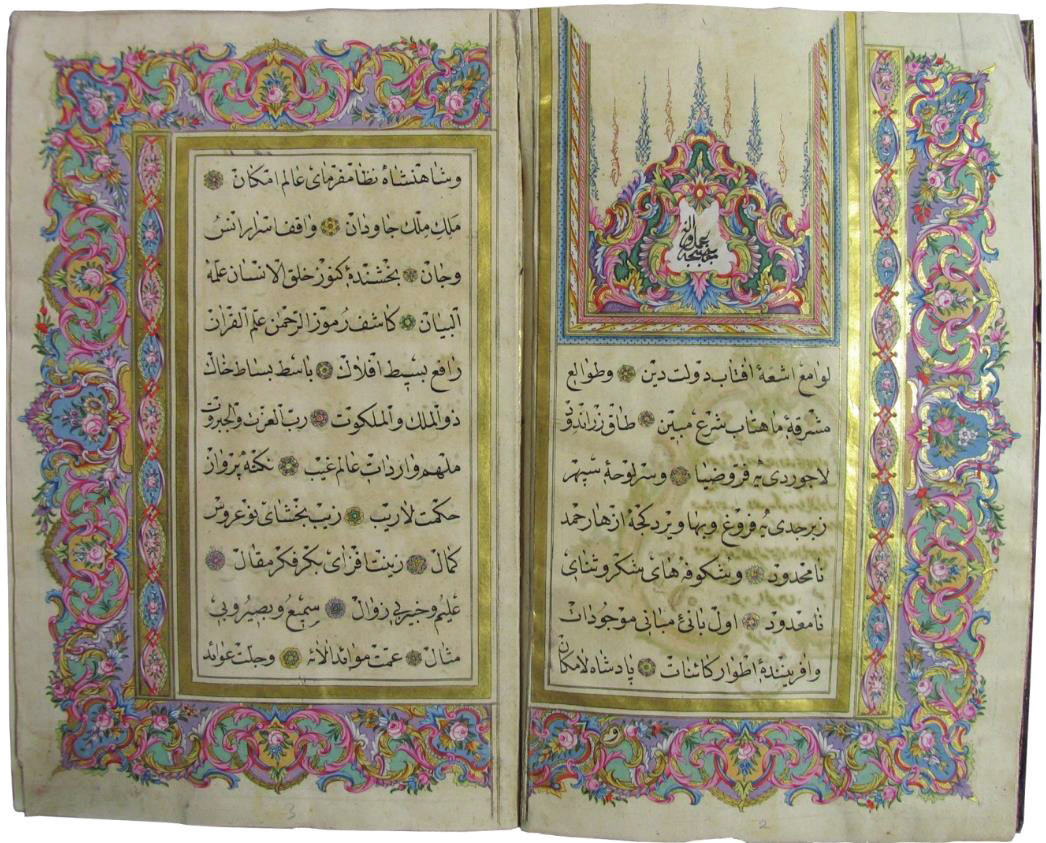 لوامع اشعهٔ افتاب دولت دین وطوالع
مشرقهٔ ماهتاب شرع مبین طاق زراندود
لاجوردی یه فر وضیا وسر لوحهٔ سپهر
زبرجدی یه فروغ وبها ویرن كجهٔ ازهار حمد
نامحدود وشكوفه های شكر وثنای
نامعدود اول بانئ مبانی موجودات
وافرینندهٔ اطوار كائنات پادشاه لامكان
وشاهنشاه نظامفرمای عالم امكان
ملك ملك جاودان واقف اسرار انس
وجان بخشندهٔ كنوز خلق الانسان علمه
البیان كاشف رموز الرحمن علم القران
رافع بسیط افلاك باسط بساط خاك
ذو الملك والملكوت رب العزت والجبروت
ملهم واردات عالم غیب نكته پرواز
حكمت لاریب زیب بخشای نو عروس
كمال زینت افزای بكر فكر مقال
علیم وخبیر بی زوال سمیع وبصیر وبی
مثال عمت موائد الائه وجلت عوائد
3
2